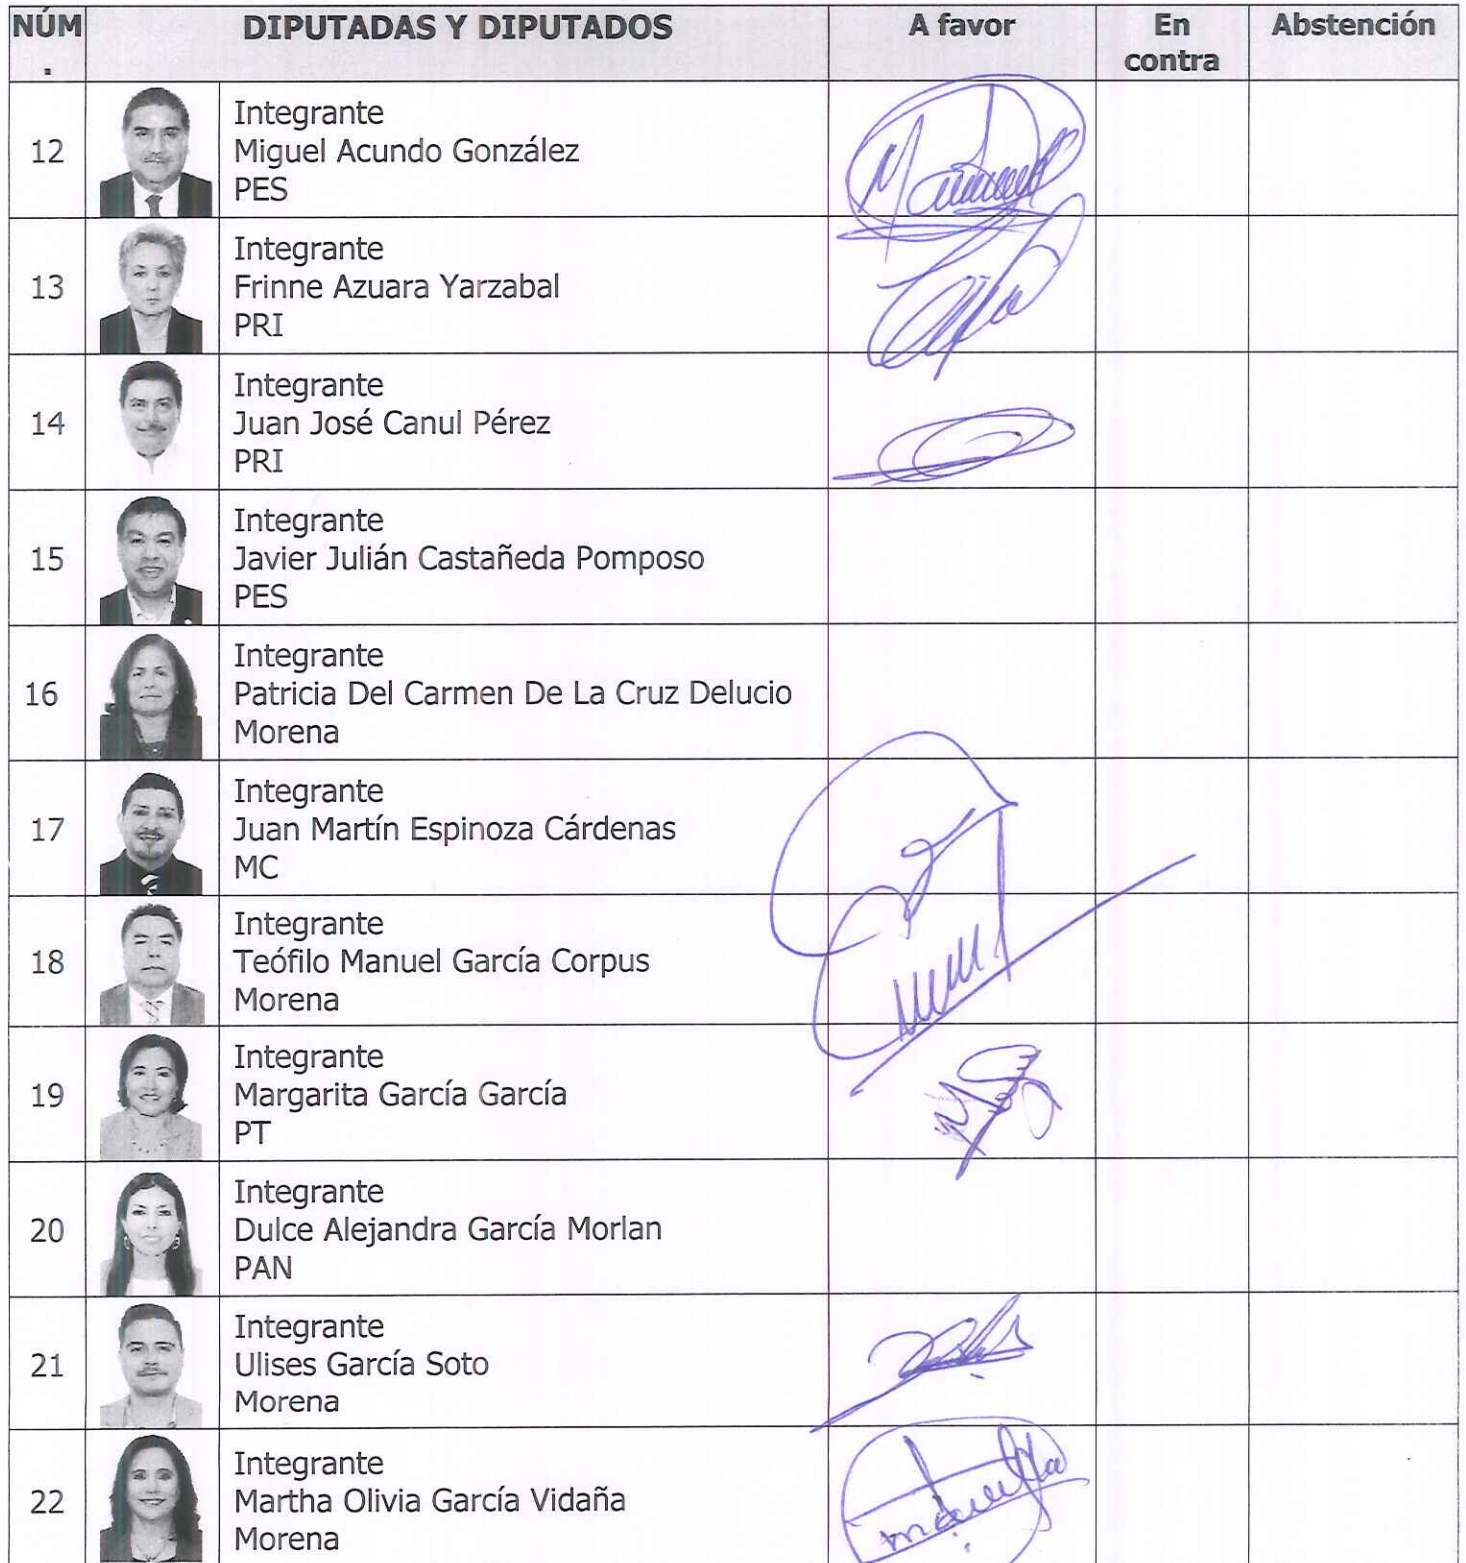 NÚM. DIPUTADAS Y DIPUTADOS A favor En contra Abstención
12
Integrante
Miguel Acundo González
PES
13
Integrante
Frinne Azuara Yarzabal
PRI
14
Integrante
Juan José Canul Pérez
PRI
15
Integrante
Javier Julián Castañeda Pomposo
PES
16
Integrante
Patricia Del Carmen De La Cruz Delucio
Morena
17
Integrante
Juan Martín Espinoza Cárdenas
MC
18
Integrante
Teófilo Manuel García Corpus
Morena
19
Integrante
Margarita García García
PT
20
Integrante
Dulce Alejandra García Morlan
PAN
21
Integrante
Ulises García Soto
Morena
22
Integrante
Martha Olivia García Vidaña
Morena